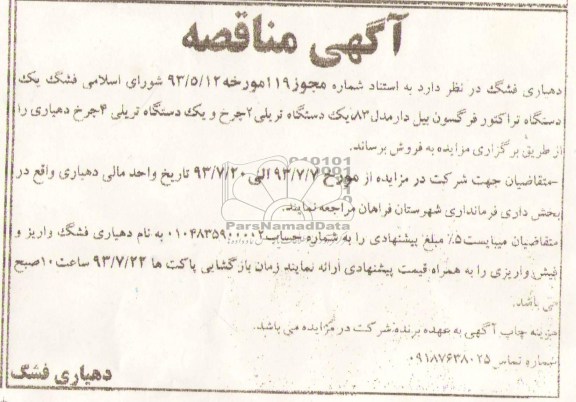 آگهی مناقصه
دهیاری فشگ در نظر دارد به استناد شماره مجوز ۱۱۹مورخه ۹۳/۵/۱۲ شورای اسلامی فشگ یک
دستگاه تراکتور فرگسون بیل دارمدل۸۳،یک دستگاه تریلی۲چرخ و یک دستگاه تریلی ۴چرخ دهیاری را
از طریق برگزاری مزایده به فروش برساند.
-متقاضیان جهت شرکت در مزایده از مورخ ۹۳/۷/۷ الی ۹۳/۷/۲۰ تاریخ واحد مالی دهیاری واقع در
بخش داری فرمانداری شهرستان فراهان مراجعه نمایند.
متقاضیان میبایست۵٪ مبلغ پیشنهادی را به شماره حساب۰۱۰۴۸۳۵۹۰۰۰۰۲ به نام دهیاری فشگ واریز و
فیش واریزی را به همراه قیمت پیشنهادی ارائه نمایند زمان بازگشایی پاکت ها ۹۳/۷/۲۲ ساعت۱۰صبح
می باشد.
هزینه چاپ آگهی به عهده برنده شرکت در مزایده می باشد.
شماره تماس ۰۹۱۸۷۶۳۸۰۲۵
دهیاری فشگ
ParsNamadData